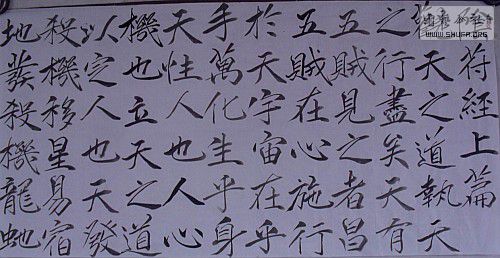 符經上篇
天之道執天
之行盡矣天有
五賊見之者昌
五賊在心施行
於天宇宙在乎
手萬化生乎身
天性人也人心
機也立天之道
以定人也天發
殺機移星易宿
地發殺機龍虵
WWW.SHUFA.ORG